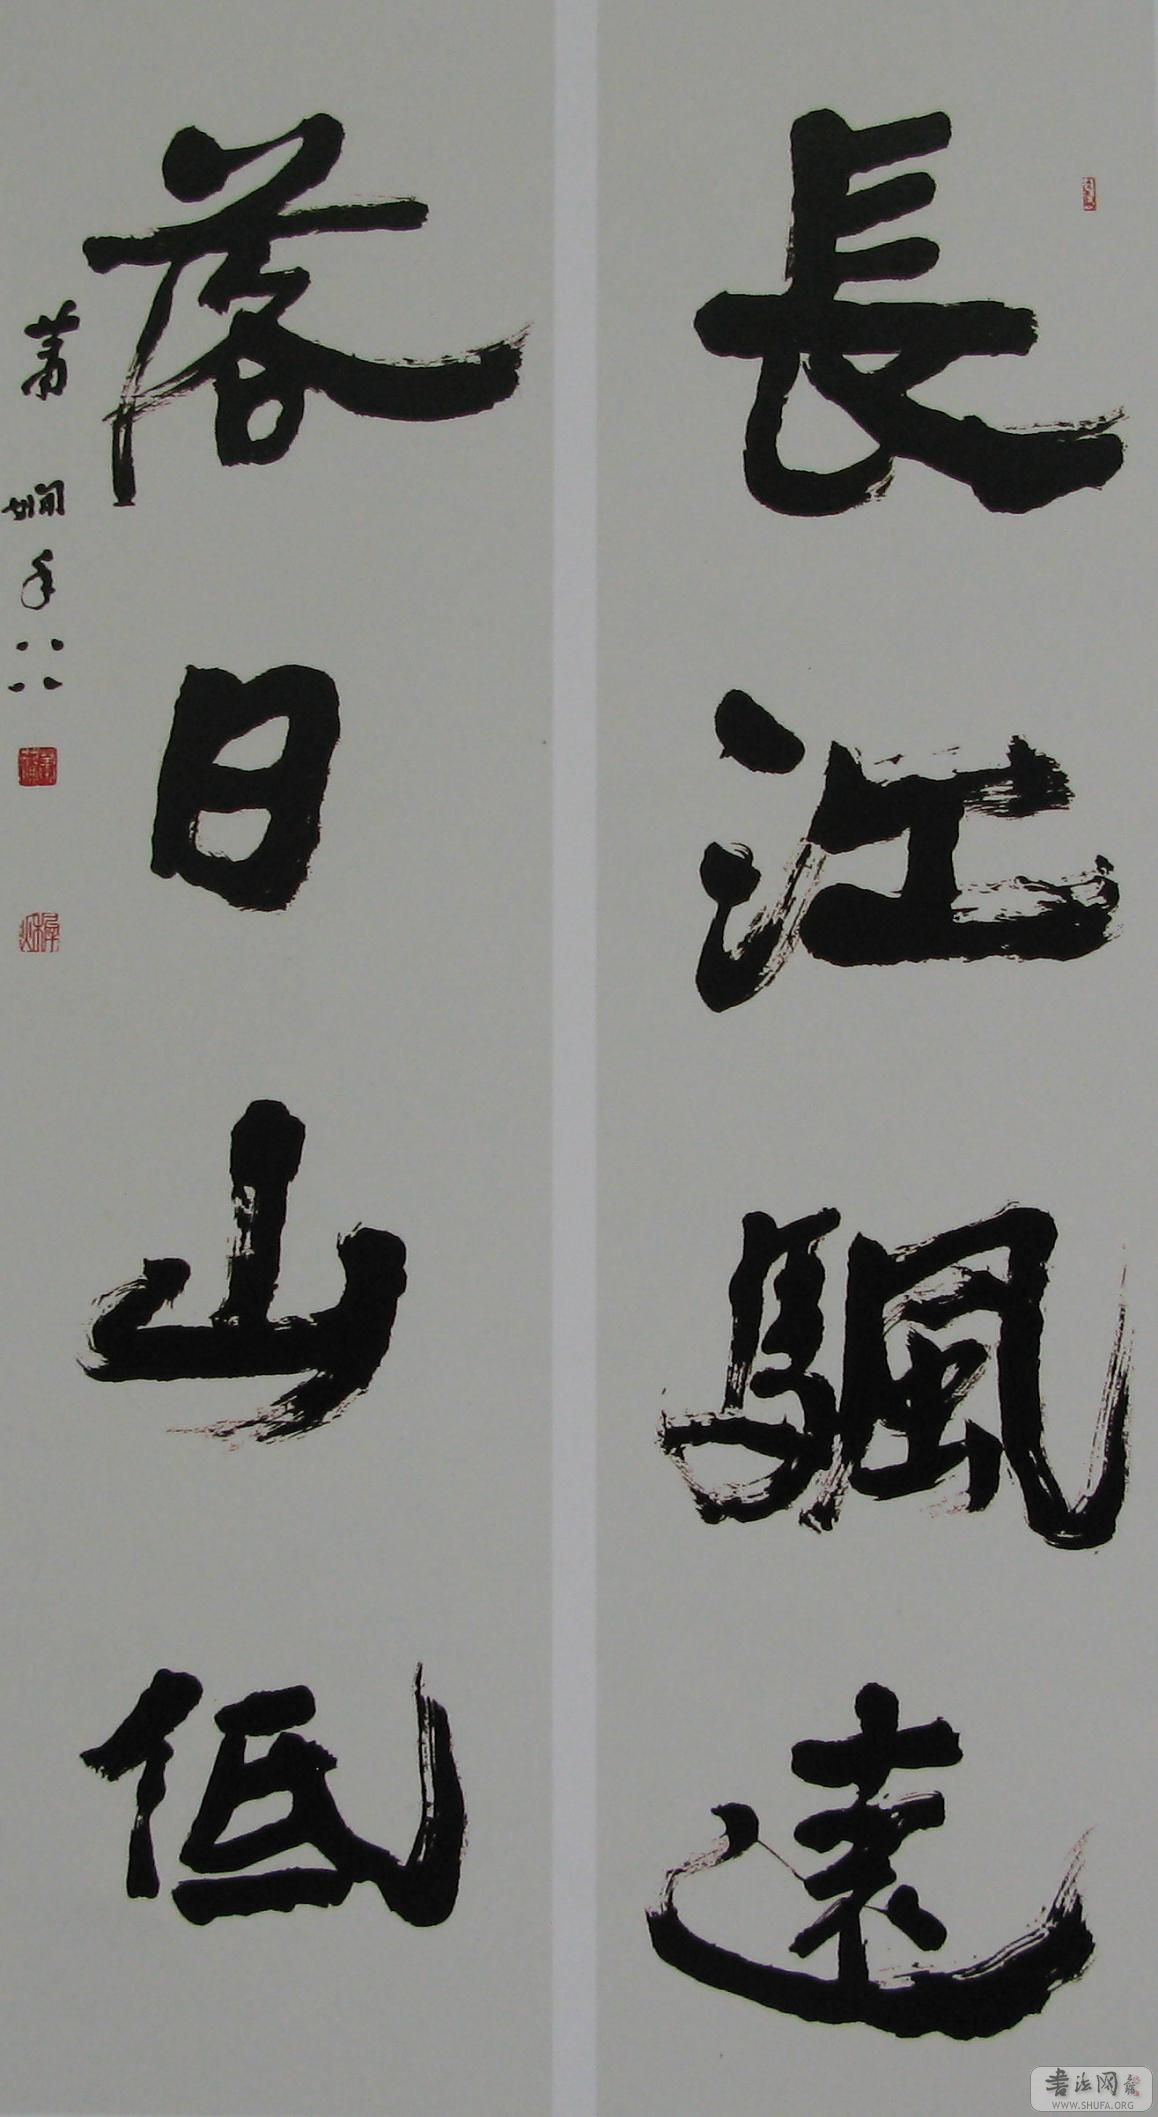 長江颿遠
落日山低
萧娴年八八
書法网
WWW.SHUFA.ORG